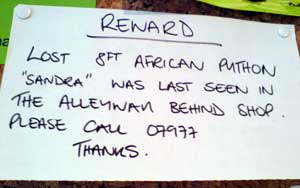 REWARD
LOST 8FT AFRICAN PYTHON
"SANDRA" WAS LAST SEEN IN
THE ALLEYWAY BEHIND SHOP.
PLEASE CALL 07977
THANKS.